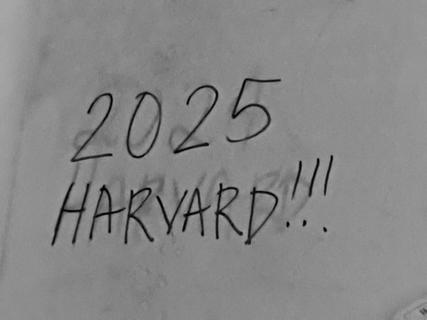 2025
HARVARD!!!